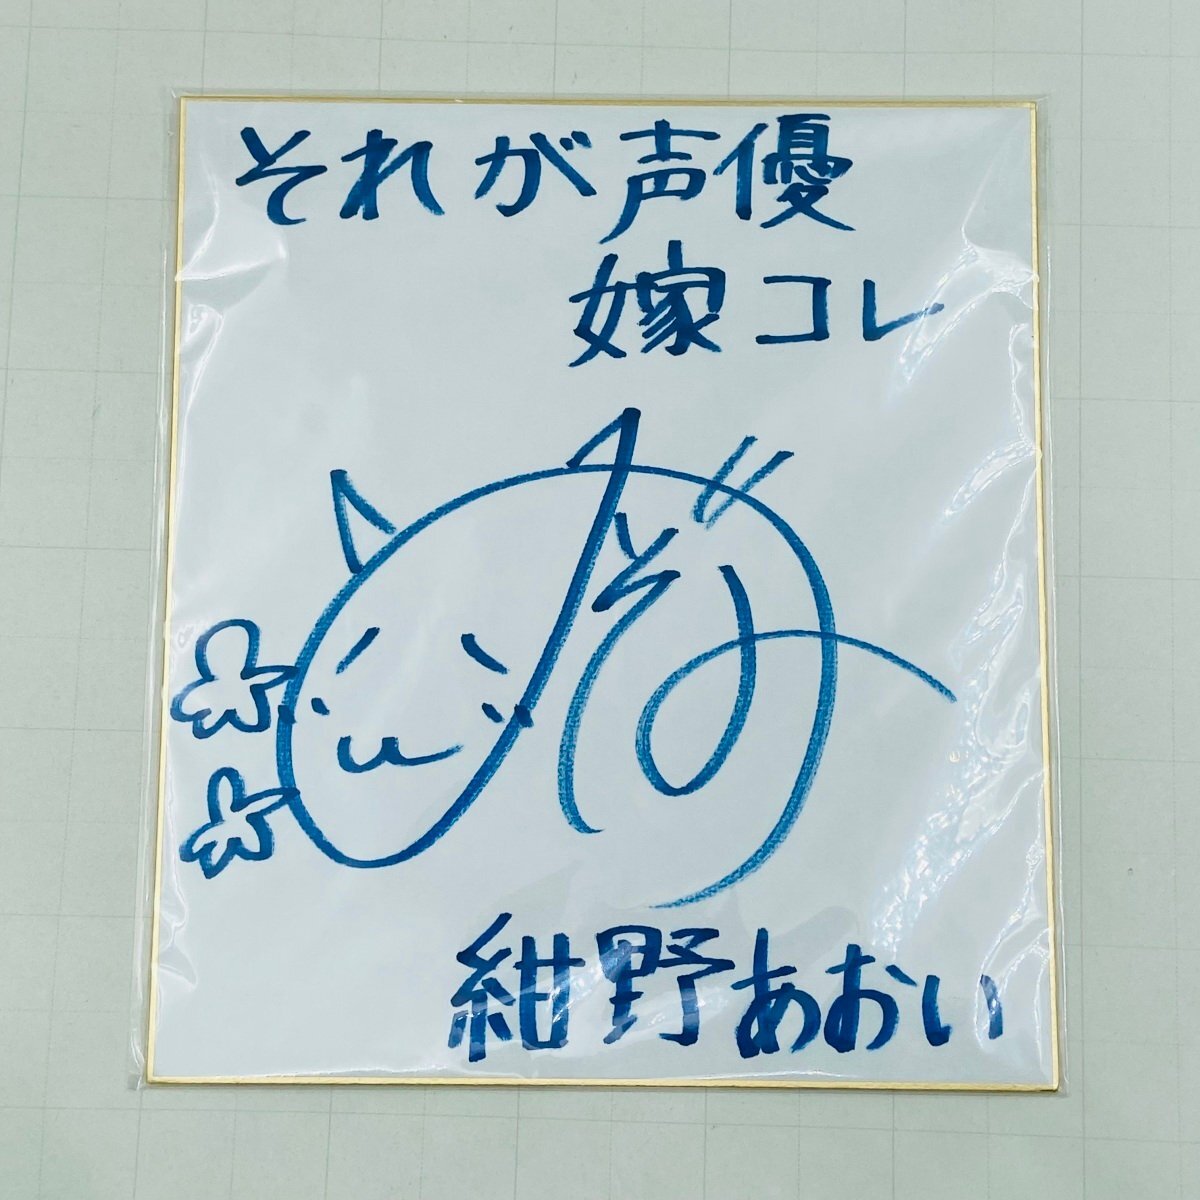 それが声優
嫁コレ
紺野あおい